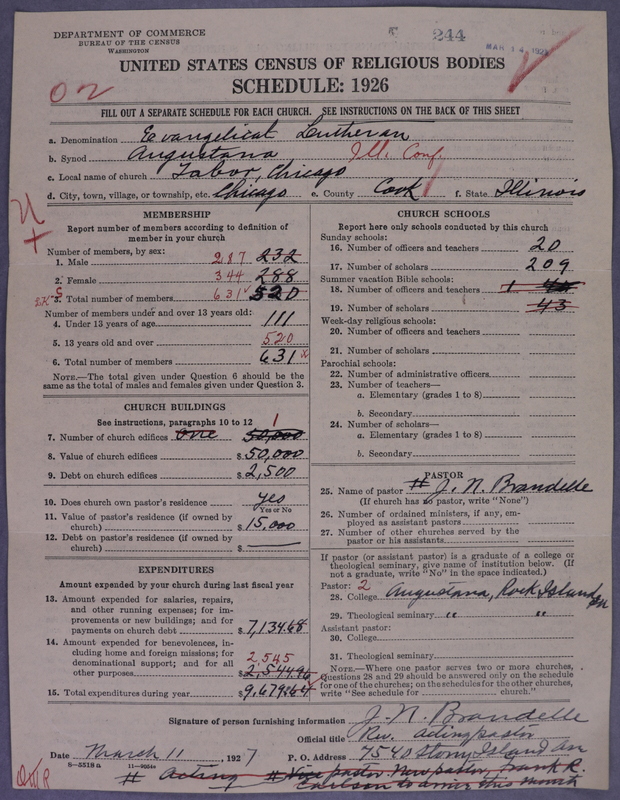 DEPARTMENT OF COMMERCE
BUREAU OF THE CENSUS
WASHINGTON
244
MAR 14 192
UNITED STATES CENSUS OF RELIGIOUS BODIES
SCHEDULE: 1926
FILL OUT A SEPARATE SCHEDULE FOR EACH CHURCH. SEE INSTRUCTIONS ON THE BACK OF THIS SHEET
a. Denomination Evangelical Lutheran
b. Synod Augustana Ill. Conf.
c. Local name of church Tabor, Chicago
d. City, town, village, or township, etc. Chicago e. County Cook f. State Illinois
MEMBERSHIP
Report number of members according to definition of
member in your church
Number of members, by sex:
1. Male 287 232
2. Female 344 288
3. Total number of members 631 520
Number of members under and over 13 years old:
4. Under 13 years of age 111
5. 13 years old and over 520
6. Total number of members 631
NOTE.—The total given under Question 6 should be
same as the total of males and females given under Question 3.
CHURCH BUILDINGS
See instructions, paragraphs 10 to 12
7. Number of church edifices one 50,000 1
8. Value of church edifices $ 50,000
9. Debt on church edifices $ 2,500
10. Does church own pastor's residence yes
Yes or No
11. Value of pastor's residence (if owned by
church) $ 15,000
12. Debt on pastor's residence (if owned by
church) $
EXPENDITURES
Amount expended by your church during last fiscal year
13. Amount expended for salaries, repairs,
and other running expenses; for im-
provements or new buildings; and for
payments on church debt $ 7,134.68
14. Amount expended for benevolences, in-
cluding home and foreign missions; for
denominational support; and for all
other purposes 2,545 $ 2,544.96
15. Total expenditures during year $ 9,679.64
CHURCH SCHOOLS
Report here only schools conducted by this church
Sunday schools:
16. Number of officers and teachers 20
17. Number of scholars 209
Summer vacation Bible schools:
18. Number of officers and teachers 1
19. Number of scholars 43
Week-day religious schools:
20. Number of officers and teachers
21. Number of scholars
Parochial schools:
22. Number of administrative officers
23. Number of teachers—
a. Elementary (grades 1 to 8)
b. Secondary
24. Number of scholars—
a. Elementary (grades 1 to 8)
b. Secondary
PASTOR
25. Name of pastor # J. N. Brandelle
(If church has no pastor, write "None")
26. Number of ordained ministers, if any, em-
ployed as assistant pastors
27. Number of other churches served by the
pastor or his assistants
If pastor (or assistant pastor) is a graduate of a college or
theological seminary, give name of institution below. (If
not a graduate, write "No" in the space indicated.)
Pastor: 2
28. College Augustana, Rock Island
29. Theological seminary " "
Assistant pastor:
30. College
31. Theological seminary
NOTE.—Where one pastor serves two or more churches,
Questions 28 and 29 should be answered only on the schedule
for one of the churches; on the schedules for the other churches,
write "See schedule for church."
Signature of person furnishing information J. N. Brandelle
Official title Rev. acting pastor
Date March 11, 1927 P. O. Address 7540 Stony Island Av
8—5518 a
# Acting # Vice pastor New pastor, Frank R.
Carlson to arrive this month